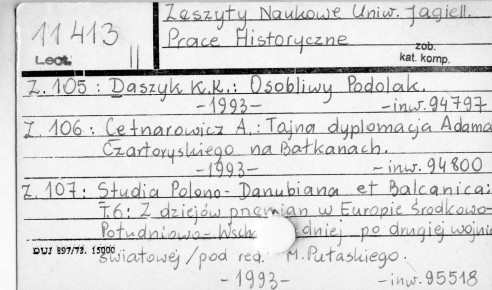 11413
Lect. II
Zeszyty Naukowe Uniw. Jagiell.
Prace Historyczne
zob.
kat. komp.
Z. 105: Daszyk K.K.: Osobliwy Podolak.
-1993- -inw. 94797
Z. 106: Cetnarowicz A.: Tajna dyplomacja Adama
Czartoryskiego na Bałkanach.
-1993- -inw. 94800
Z. 107: Studia Polono-Danubiana et Balcanica:
T.6: Z dziejów przemian w Europie Środkowo-
Południowo-Wsch dniej po drugiej wojnie
DUJ 897/78. 15000 światowej/pod red. M. Pułaskiego.
-1993- -inw. 95518